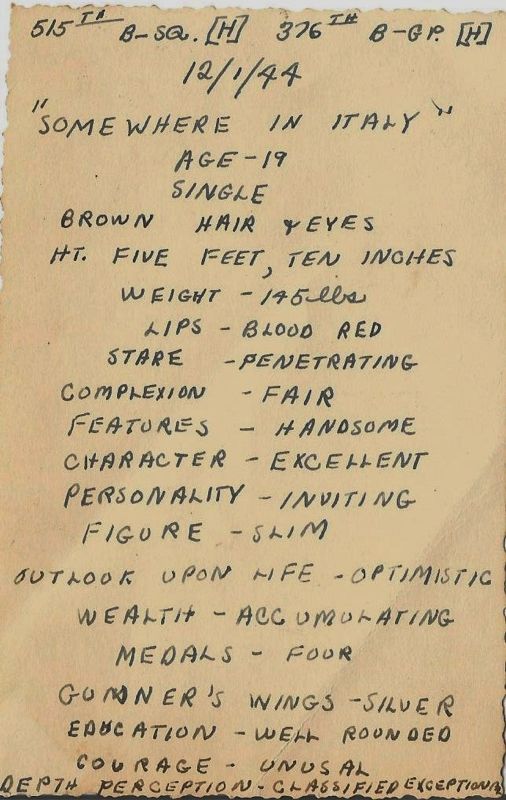 515TH B-SQ. [H] 376TH B-GP. [H]
12/1/44
"SOMEWHERE IN ITALY"
AGE - 19
SINGLE
BROWN HAIR & EYES
HT. FIVE FEET, TEN INCHES
WEIGHT - 145 lbs
LIPS - BLOOD RED
STARE - PENETRATING
COMPLEXION - FAIR
FEATURES - HANDSOME
CHARACTER - EXCELLENT
PERSONALITY - INVITING
FIGURE - SLIM
OUTLOOK UPON LIFE - OPTIMISTIC
WEALTH - ACCUMULATING
MEDALS - FOUR
GUNNER'S WINGS - SILVER
EDUCATION - WELL ROUNDED
COURAGE - UNUSAL
DEPTH PERCEPTION - CLASSIFIED EXCEPTIONAL